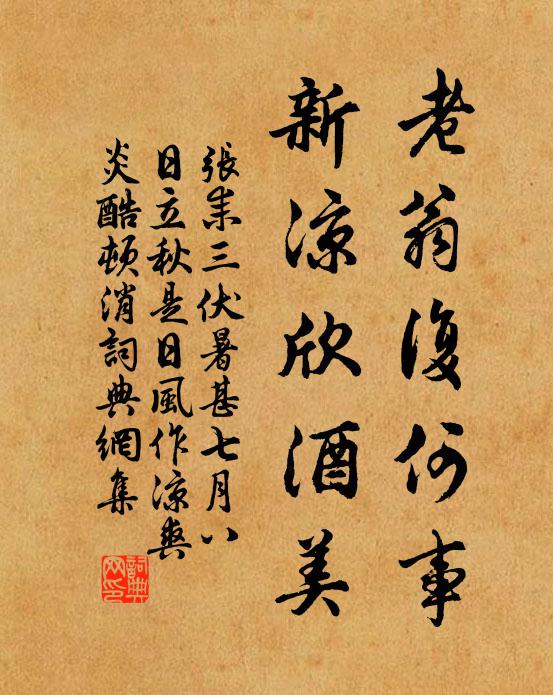 老翁復何事
新涼欣酒美
張耒三伏暑甚七月八
日立秋是日風作涼爽
炎酷頓消詞典網集
詞典
网印